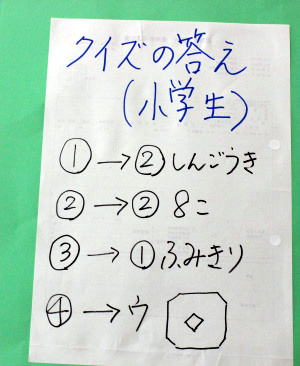 クイズの答え
(小学生)
①→②しんごうき
②→②8こ
③→①ふみきり
④→ウ